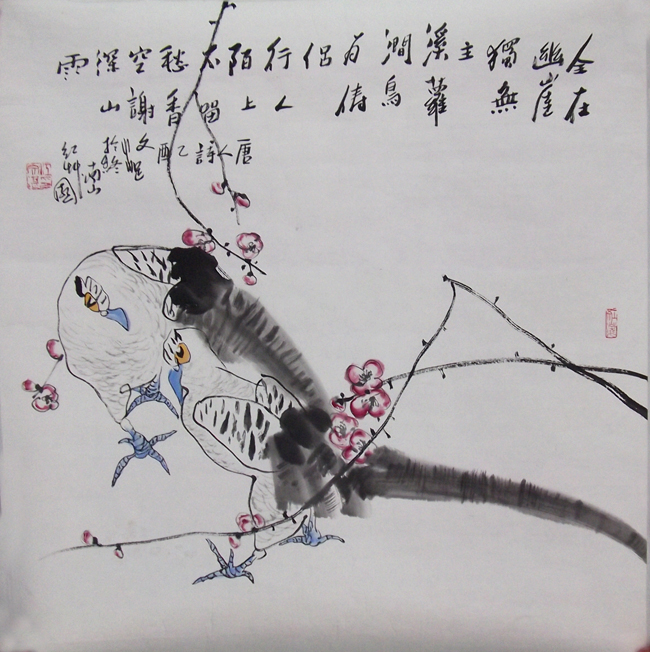 全在
幽崖
獨無
主
溪蘿
澗鳥
为儔
侣
行人
陌上
不留
愁香
空謝
深山
雨
唐
人
詩
乙酉
文
於終
南山
紅艸園